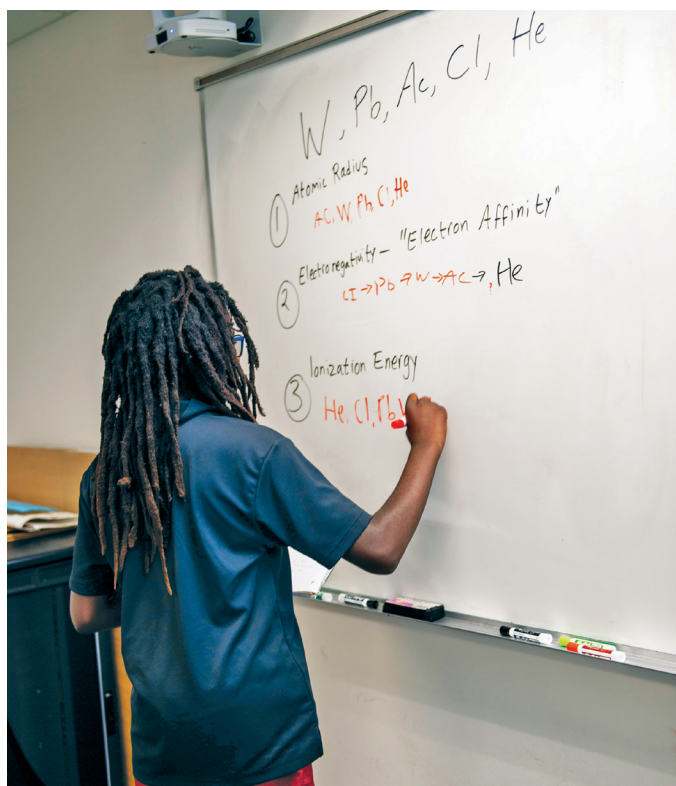 W, Pb, Ac, Cl, He
1 Atomic Radius
Ac, W, Pb, Cl, He
2 Electronegativity - "Electron Affinity"
Cl → Pb → W → Ac →, He
3 Ionization Energy
He, Cl, Pb